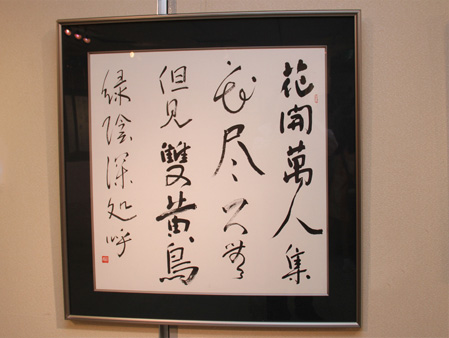 花開萬人集
花尽一人無
但見雙黄鳥
緑陰深処呼